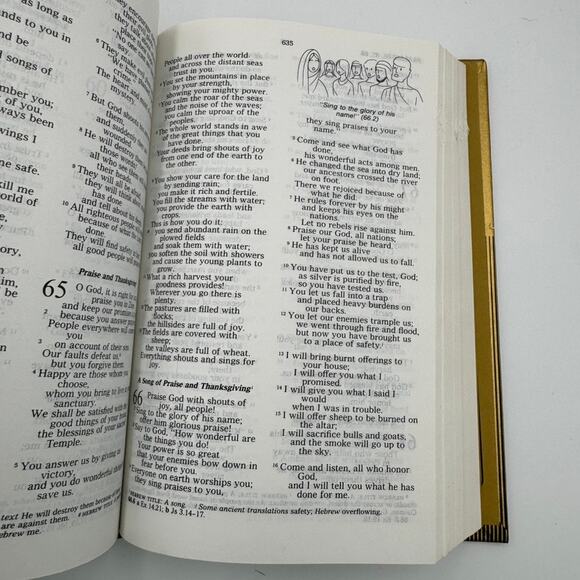 as long as
tands to you in
ad songs of
mber you;
ways been
wings I
e safe.
kill me
world of
tory,
him,
ind me
they encourage
6 They make
say,
crime
The
myste
7 But God shoots h
and suddenly
wound
8 He will destroy
words;
all who see them
their heads
9 They will all be afraid
has done
and tell about his deeds
10 All righteous people
because of what
done.
They will find safety in
all
Praise and Thanksgiving
65 O God, it is right for us
praise you in Zion
and keep our promises
2 because you answer
People everywhere will
you
3 on account of their sins
Our faults defeat us,
but you forgive them.
4 Happy are those whom
choose,
whom you bring to live
sanctuary.
We shall be satisfied with the
good things of your
the blessings of your sacred
Temple.
5 You answer us by giving us
victory,
and you do wonderful things
save us.
text He will destroy them because of
are against them.
ebrew me.
635
People all over the world
and across the distant seas
trust in you.
6 You set the mountains in place
by your strength,
showing your mighty power.
7 You calm the roar of the seas
and the noise of the waves;
you calm the uproar of the
peoples.
8 The whole world stands in awe
of the great things that you
have done.
Your deeds bring shouts of joy
from one end of the earth to
the other.
9 You show your care for the land
by sending rain;
you make it rich and fertile.
You fill the streams with water;
you provide the earth with
crops.
This is how you do it:
10 you send abundant rain on the
plowed fields
and soak them with water;
you soften the soil with showers
and cause the young plants to
grow.
11 What a rich harvest your
goodness provides!
Wherever you go there is
plenty.
12 The pastures are filled with
flocks;
the hillsides are full of joy.
13 The fields are covered with
sheep;
the valleys are full of wheat.
Everything shouts and sings for
joy.
A Song of Praise and Thanksgiving
66 Praise God with shouts of
joy, all people!
2 Sing to the glory of his name;
offer him glorious praise!
3 Say to God, "How wonderful are
the things you do!
Your power is so great
that your enemies bow down in
fear before you.
4 Everyone on earth worships you;
they sing praises to you,
"Sing to the glory of his
name" (66.2)
they sing praises to your
name."
5 Come and see what God has
done,
his wonderful acts among men.
6 He changed the sea into dry land;
our ancestors crossed the river
on foot.
There we rejoiced because of
what he did.
7 He rules forever by his might
and keeps his eyes on the
nations.
Let no rebels rise against him.
8 Praise our God, all nations;
let your praise be heard.
9 He has kept us alive
and has not allowed us to fall.
10 You have put us to the test, God;
as silver is purified by fire,
so you have tested us.
11 You let us fall into a trap
and placed heavy burdens on
our backs.
12 You let our enemies trample us;
we went through fire and flood,
but now you have brought us
to a place of safety.
13 I will bring burnt offerings to
your house;
I will offer you what I
promised.
14 I will give you what I said I
would
when I was in trouble.
15 I will offer sheep to be burned on
the altar;
I will sacrifice bulls and goats,
and the smoke will go up to
the sky.
16 Come and listen, all who honor
God,
and I will tell you what he has
done for me.
HEBREW TITLE: A song. Some ancient translations safety; Hebrew overflowing.
66.6 a Ex 14:21; b Js 3.14-17.